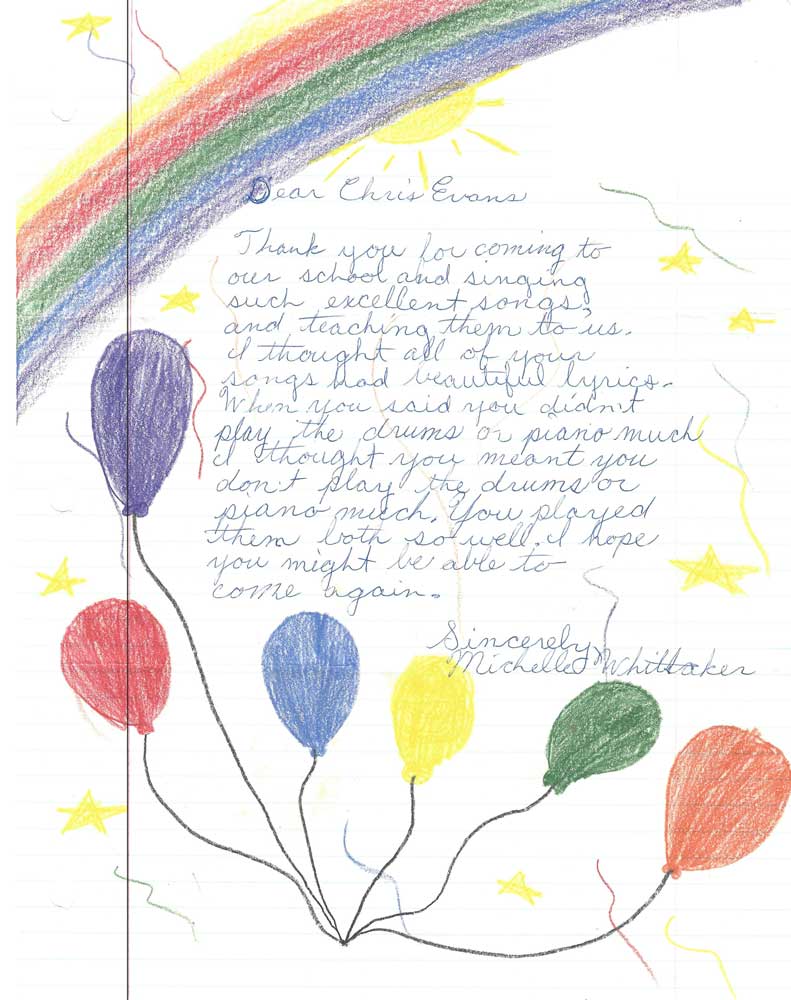 Dear Chris Evans
Thank you for coming to
our school and singing
such excellent songs,
and teaching them to us.
I thought all of your
songs had beautiful lyrics.
When you said you didn't
play the drums or piano much
I thought you meant you
don't play the drums or
piano much. You played
them both so well. I hope
you might be able to
come again.
Sincerely,
Michelle Whittaker